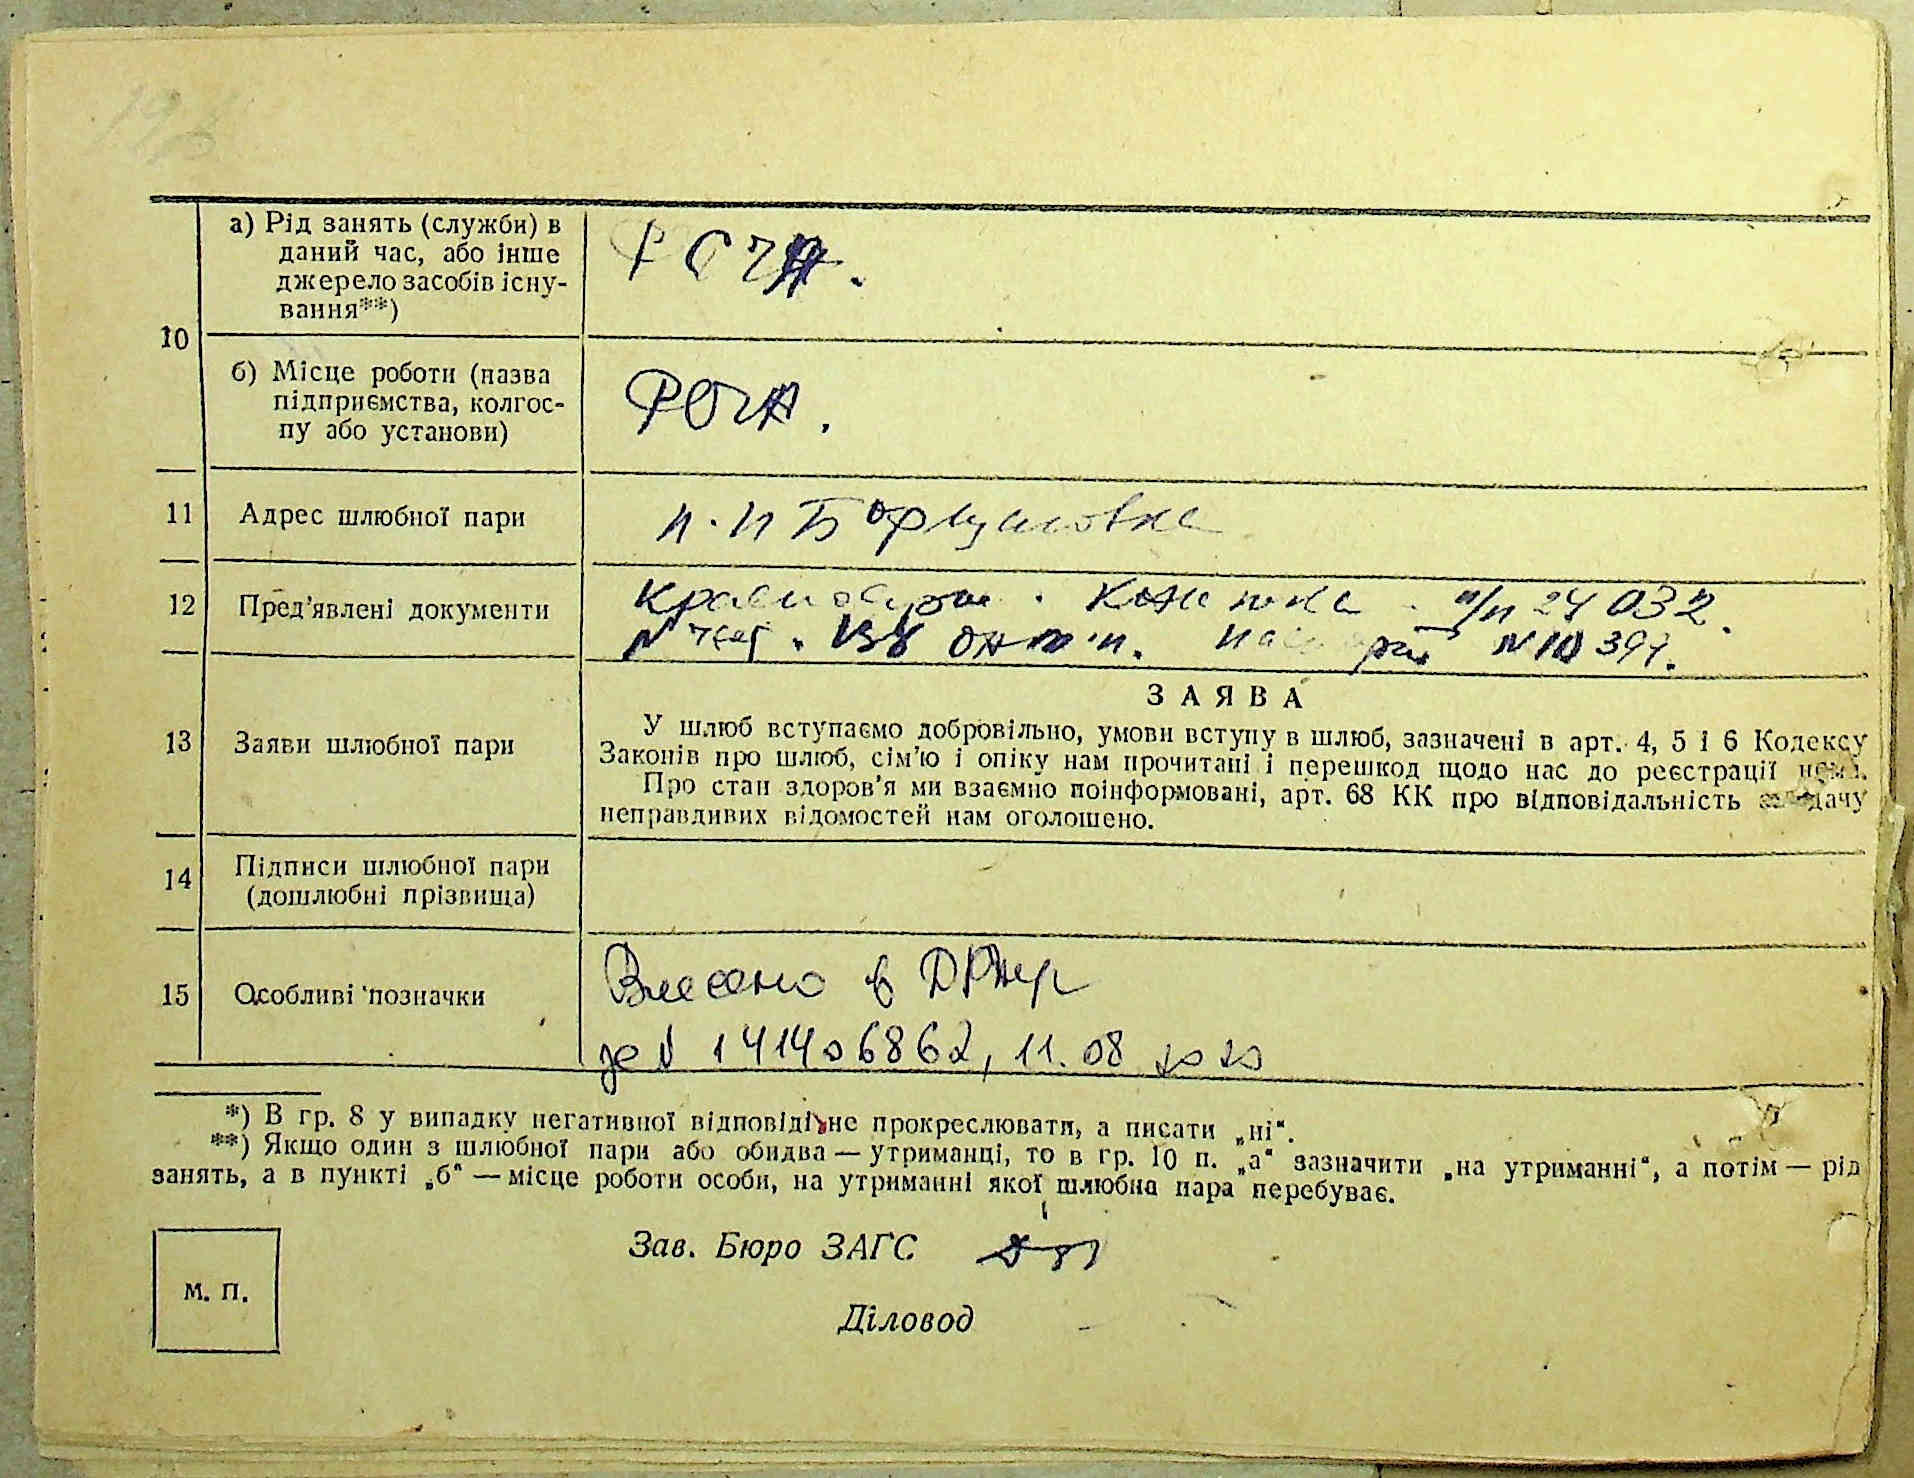 а) Рід занять (служби) в
даний час, або інше
джерело засобів існу-
вання**)
10
б) Місце роботи (назва
підприємства, колгос-
пу або установи)
11 Адрес шлюбної пари
12 Пред'явлені документи
книжка п/п 24032.
N
З А Я В А
13 Заяви шлюбної пари
У шлюб вступаємо добровільно, умови вступу в шлюб, зазначені в арт. 4, 5 і 6 Кодексу
Законів про шлюб, сім'ю і опіку нам прочитані і перешкод щодо нас до реєстрації нема.
Про стан здоров'я ми взаємно поінформовані, арт. 68 КК про відповідальність за дачу
неправдивих відомостей нам оголошено.
14 Підписи шлюбної пари
(дошлюбні прізвища)
15 Особливі позначки
Внесено в
за N 141406862, 11.08 2020
*) В гр. 8 у випадку негативної відповіді не прокреслювати, а писати „ні“.
**) Якщо один з шлюбної пари або обидва — утриманці, то в гр. 10 п. „а“ зазначити „на утриманні“, а потім — рід
занять, а в пункті „б“ — місце роботи особи, на утриманні якої шлюбна пара перебуває.
Зав. Бюро ЗАГС
М. П.
Діловод